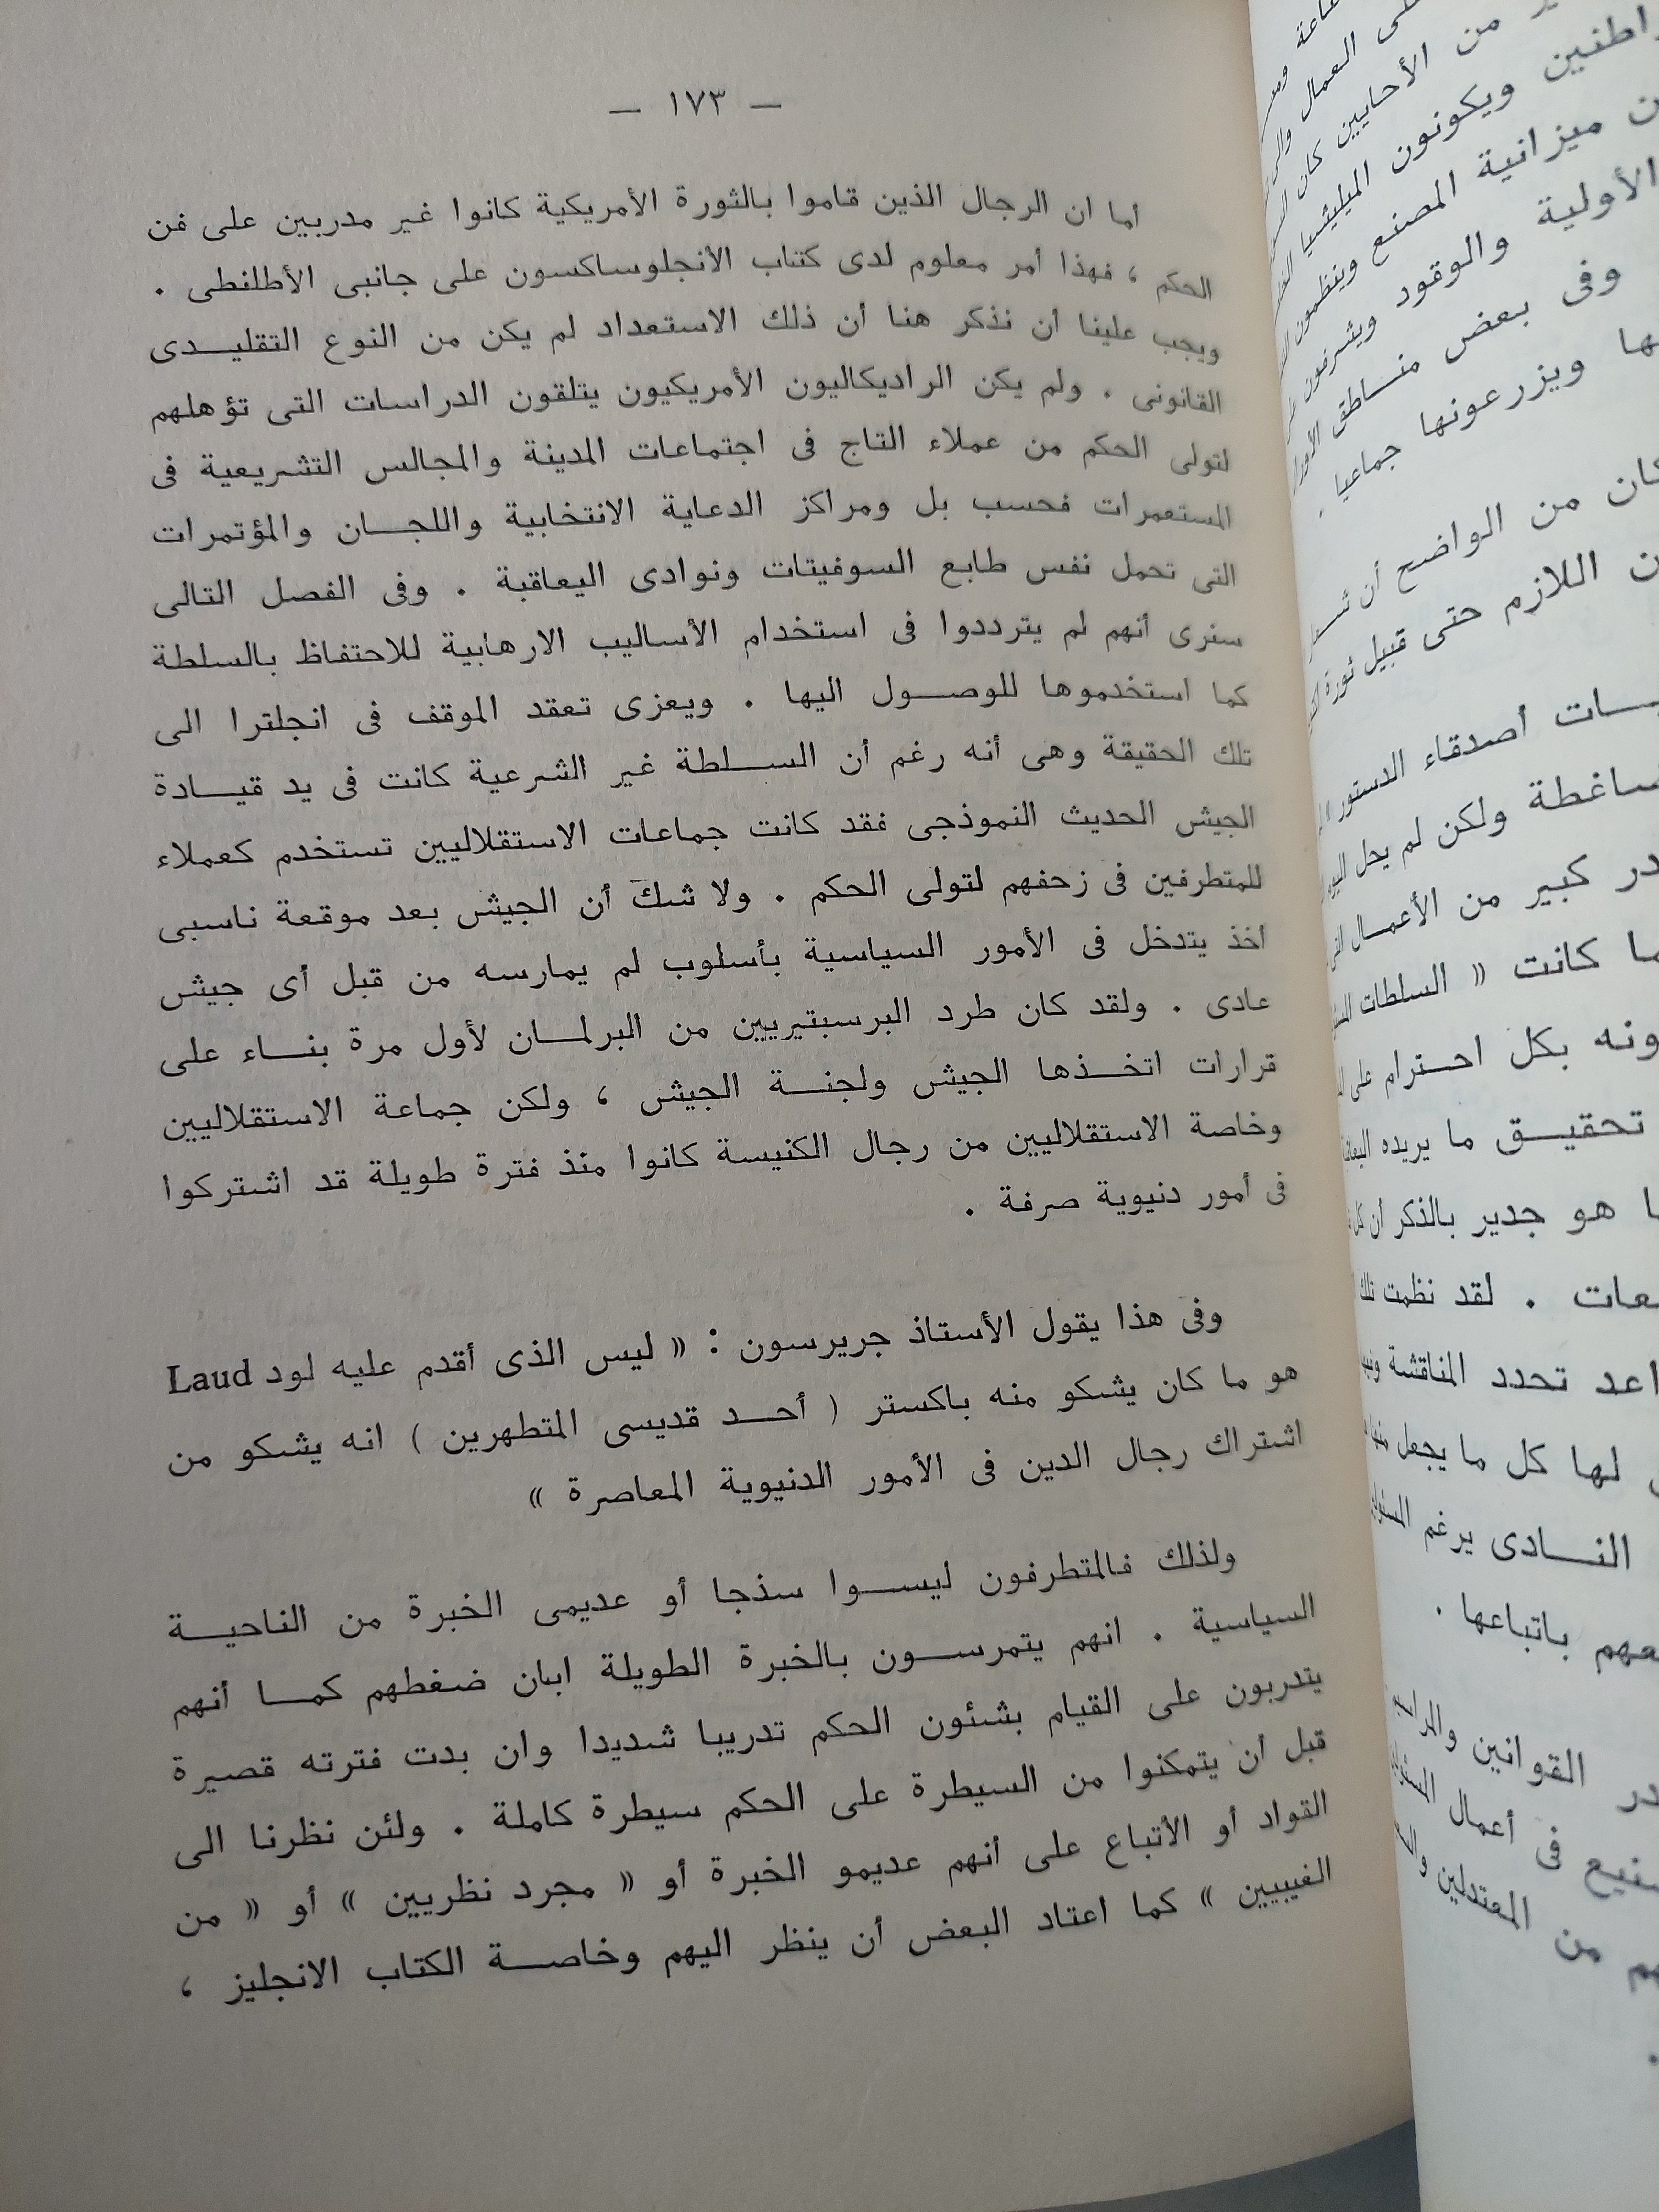 — ١٧٣ —
أما ان الرجال الذين قاموا بالثورة الأمريكية كانوا غير مدربين على فن
الحكم ، فهذا أمر معلوم لدى كتاب الأنجلوساكسون على جانبى الأطلنطى .
ويجب علينا أن نذكر هنا أن ذلك الاستعداد لم يكن من النوع التقليدى
القانونى . ولم يكن الراديكاليون الأمريكيون يتلقون الدراسات التى تؤهلهم
لتولى الحكم من عملاء التاج فى اجتماعات المدينة والمجالس التشريعية فى
المستعمرات فحسب بل ومراكز الدعاية الانتخابية واللجان والمؤتمرات
التى تحمل نفس طابع السوفيتات ونوادى اليعاقبة . وفى الفصل التالى
سنرى أنهم لم يترددوا فى استخدام الأساليب الارهابية للاحتفاظ بالسلطة
كما استخدموها للوصول اليها . ويعزى تعقد الموقف فى انجلترا الى
تلك الحقيقة وهى أنه رغم أن السلطة غير الشرعية كانت فى يد قيادة
الجيش الحديث النموذجى فقد كانت جماعات الاستقلاليين تستخدم كعملاء
للمتطرفين فى زحفهم لتولى الحكم . ولا شك أن الجيش بعد موقعة ناسبى
أخذ يتدخل فى الأمور السياسية بأسلوب لم يمارسه من قبل أى جيش
عادى . ولقد كان طرد البرسبتيريين من البرلمان لأول مرة بناء على
قرارات اتخذها الجيش ولجنة الجيش ، ولكن جماعة الاستقلاليين
وخاصة الاستقلاليين من رجال الكنيسة كانوا منذ فترة طويلة قد اشتركوا
فى أمور دنيوية صرفة .
وفى هذا يقول الأستاذ جريرسون : « ليس الذى أقدم عليه لود Laud
هو ما كان يشكو منه باكستر ( أحد قديسى المتطهرين ) انه يشكو من
اشتراك رجال الدين فى الأمور الدنيوية المعاصرة »
ولذلك فالمتطرفون ليسوا سذجا أو عديمى الخبرة من الناحية
السياسية . انهم يتمرسون بالخبرة الطويلة ابان ضغطهم كما أنهم
يتدربون على القيام بشئون الحكم تدريبا شديدا وان بدت فترته قصيرة
قبل أن يتمكنوا من السيطرة على الحكم سيطرة كاملة . ولئن نظرنا الى
القواد أو الأتباع على أنهم عديمو الخبرة أو « مجرد نظريين » أو « من
الغيبيين » كما اعتاد البعض أن ينظر اليهم وخاصة الكتاب الانجليز ،
من الأحايين كان
ويكونون الميليشيا
ميزانية المصنع وينظمون
الأولية والوقود ويشرفون
وفى بعض مناطق
ويزرعونها جماعيا .
من الواضح أن
اللازم حتى قبيل ثورة
أصدقاء الدستور
ولكن لم يحل
كبير من الأعمال
كانت « السلطات
بكل احترام على
تحقيق ما يريده
هو جدير بالذكر أن كل
. لقد نظمت تلك
تحدد المناقشة
لها كل ما يجعل منها
النادى يرغم
باتباعها .
القوانين
فى أعمال
من المعتدلين